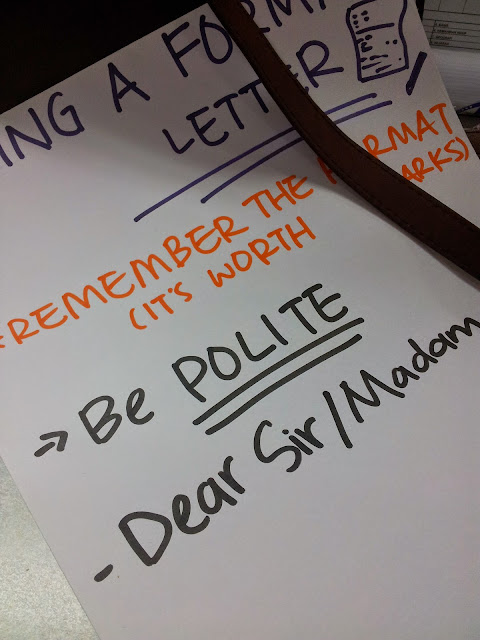 ING A FORM
LETTER
REMEMBER THE RMAT
(IT'S WORTH ARKS)
→ Be POLITE
- Dear Sir/Madam